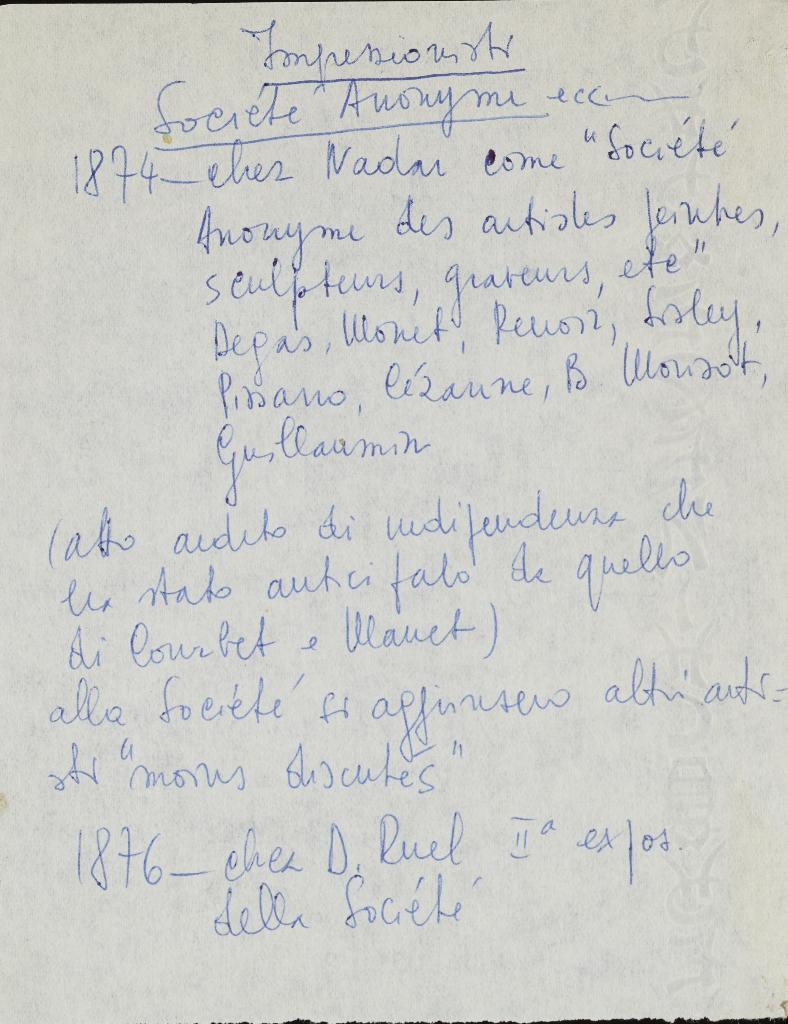 Impressionisti
Société Anonyme ecc
1874 — chez Nadar come "Société
Anonyme des artistes peintres,
sculpteurs, graveurs, etc"
Degas, Monet, Renoir, Sisley,
Pissarro, Cézanne, B Morisot,
Guillaumin
(atto ardito di indipendenza che
era stato anticipato da quello
di Courbet e Manet)
alla Société si aggiunsero altri arti=
sti "moins discutés"
1876 — chez D. Ruel IIª expos.
della Société